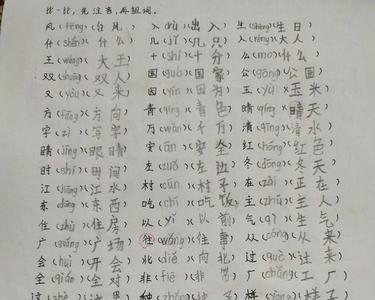 比一比,先注音,再组词。
风(fēng)(台风) 入(rù)(出入) 生(shēng)(生日)
什(shén)(什么) 几(jǐ)(几只) 人(rén)(大人)
王(wáng)(大王) 十(shí)(十分) 么(mo)(什么)
双(shuāng)(双人) 国(guó)(国家) 公(gōng)(公园)
又(yòu)(又来) 因(yīn)(因为) 玉(yù)(玉米)
方(fāng)(方向) 青(qīng)(青色) 晴(qíng)(晴天)
字(zì)(写字) 万(wàn)(千万) 清(qīng)(清水)
睛(jīng)(眼睛) 安(ān)(安全) 红(hóng)(红色)
时(shí)(时间) 左(zuǒ)(左边) 冬(dōng)(冬天)
江(jiāng)(江水) 村(cūn)(村子) 在(zài)(正在)
东(dōng)(东西) 吃(chī)(吃饭) 主(zhǔ)(主人)
住(zhù)(住房) 以(yǐ)(以前) 气(qì)(生气)
广(guǎng)(广场) 往(wǎng)(往常) 从(cóng)(从来)
会(huì)(开会) 北(běi)(向北) 过(guò)(过来)
全(quán)(全对) 非(fēi)(非常) 厂(chǎng)(工厂)